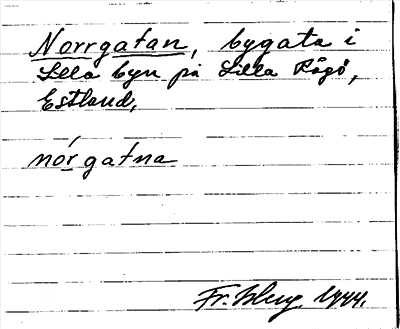 Norrgatan, bygata i
Lilla byn på Lilla Rågö,
Estland.
nórgatna
Fr. 1944.